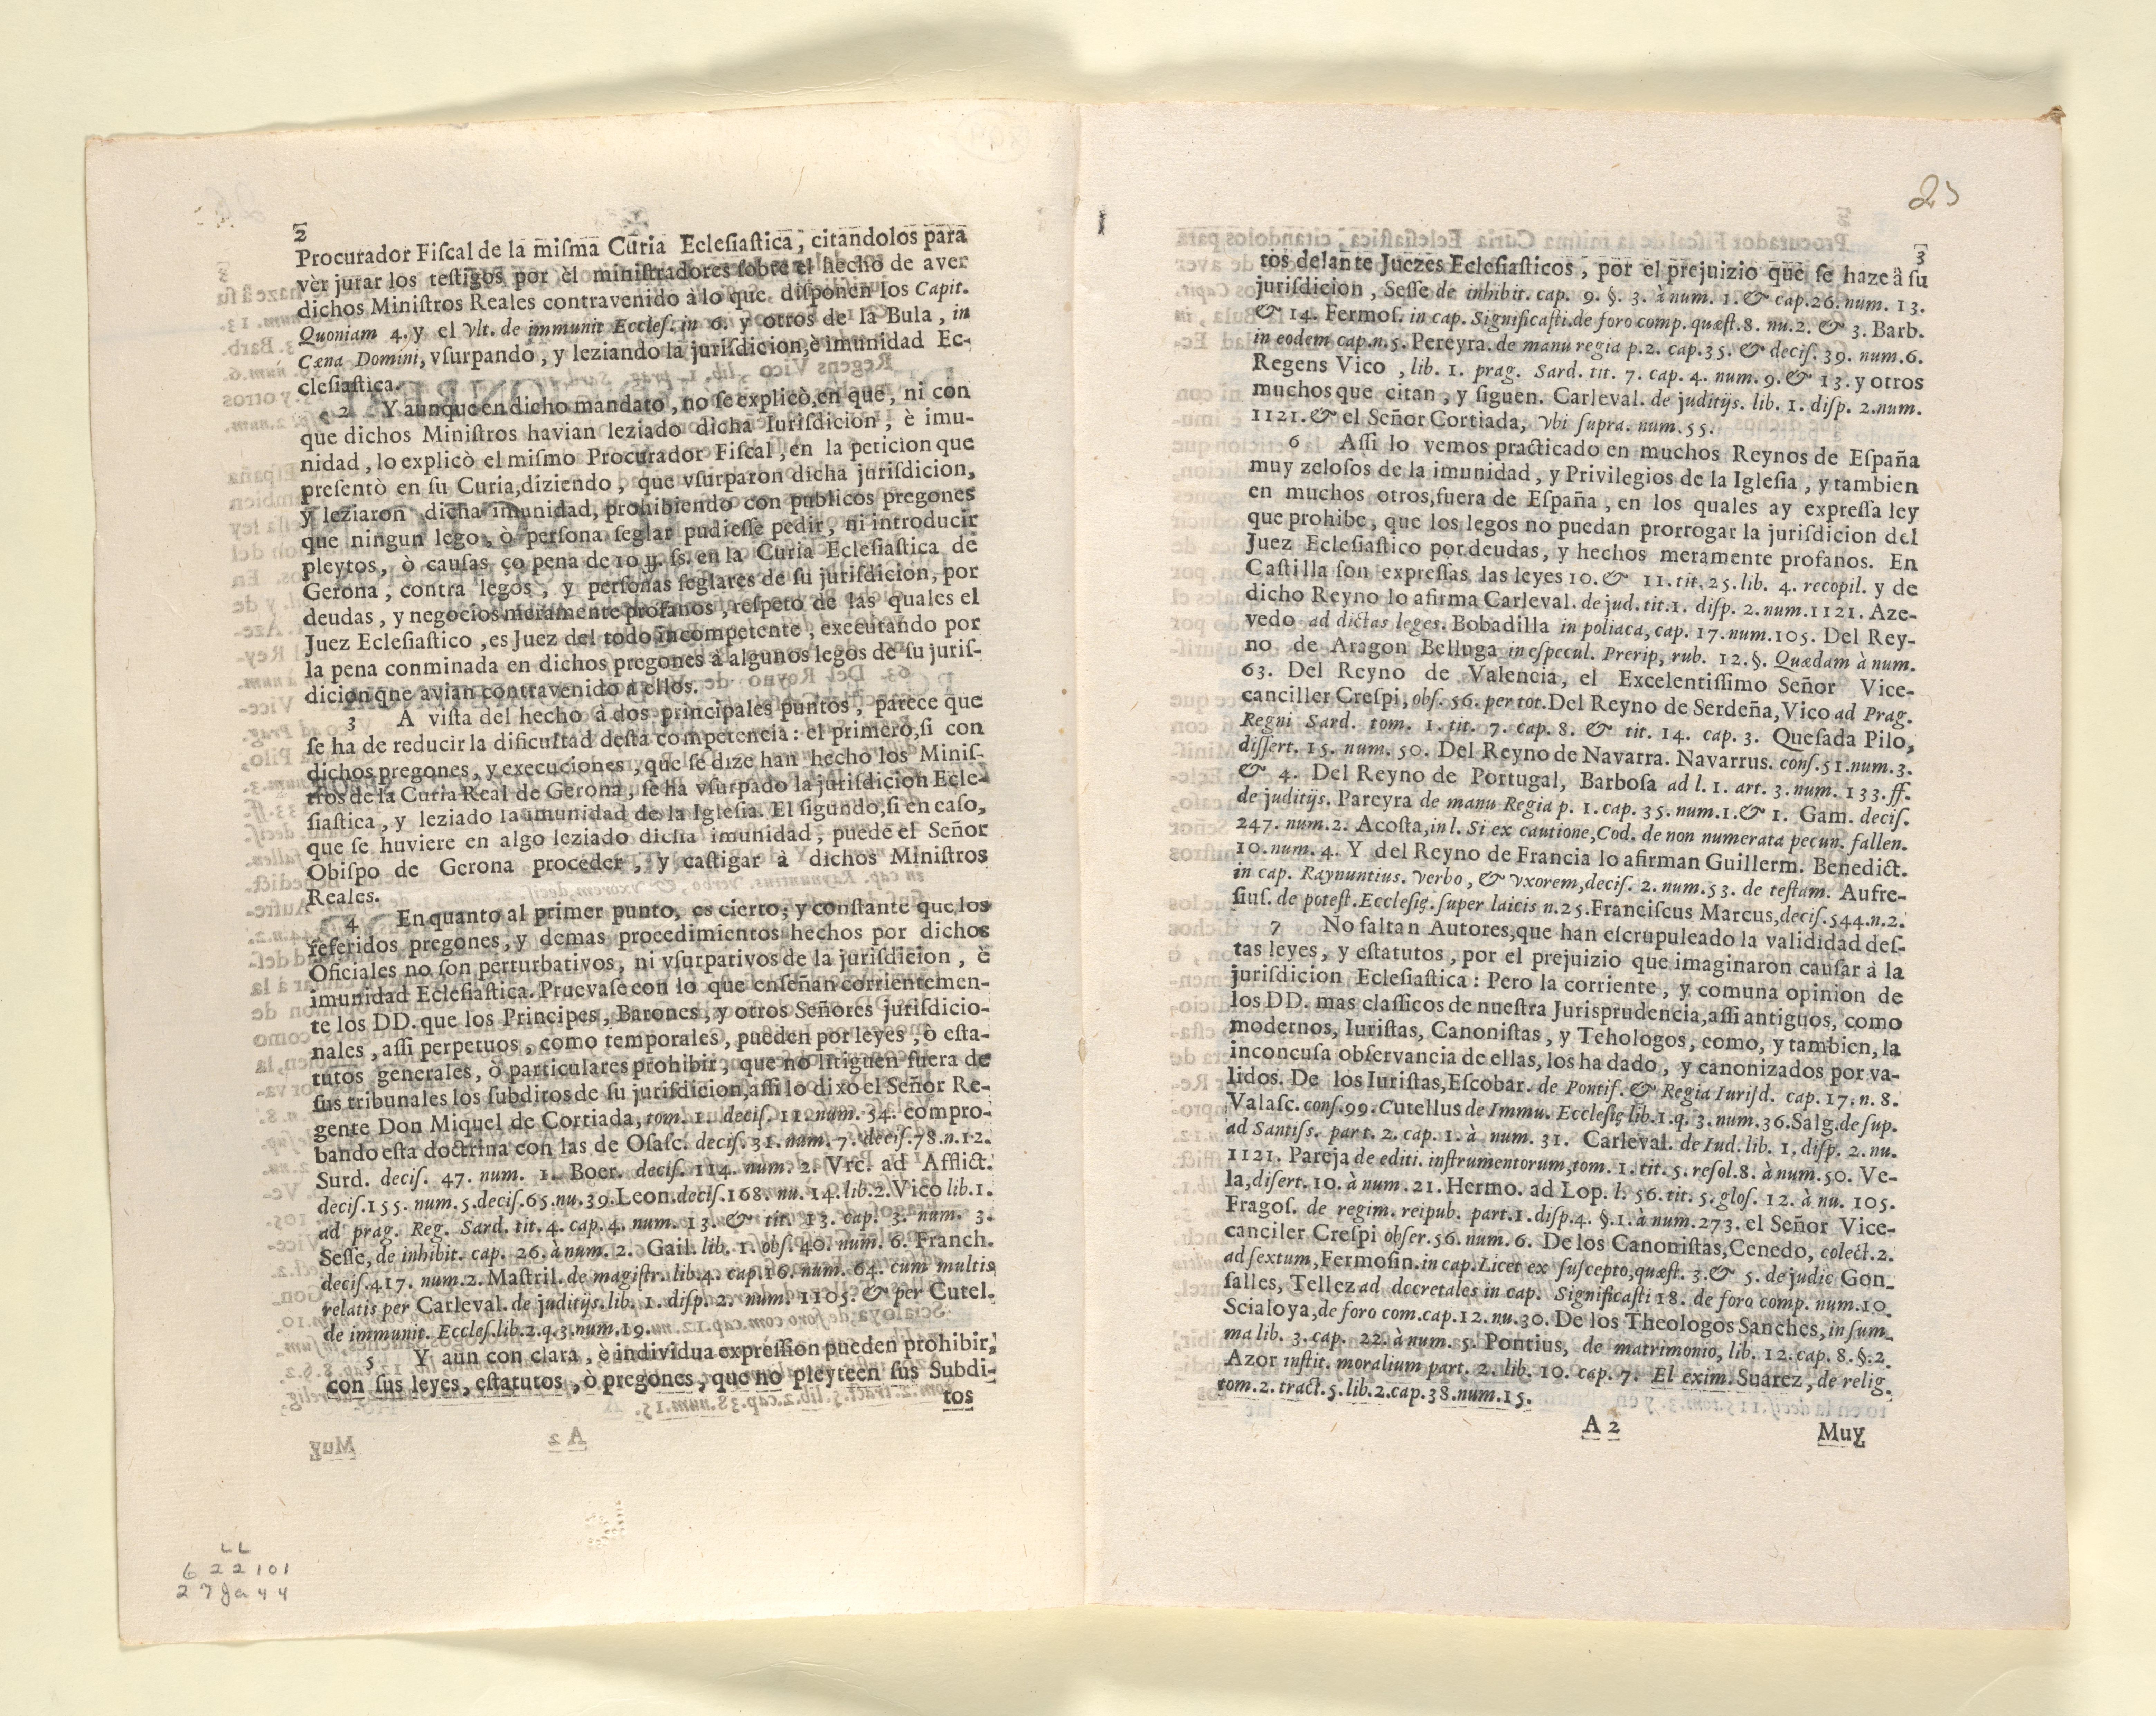 2
Procurador Fiſcal de la miſma Curia Ecleſiaſtica, citandolos para
vèr jurar los teſtigos por èl miniſtradores ſobre el hecho de aver
dichos Miniſtros Reales contravenido à lo que diſponen los Capit.
Quoniam 4. y el vlt. de immunit Eccleſ. in 6. y otros de la Bula, in
Cœna Domini, vſurpando, y leziando la juriſdicion, è imunidad Ec-
cleſiaſtica.
2 Y aunque en dicho mandato, no ſe explicò, en que, ni con
que dichos Miniſtros havian leziado dicha Iuriſdicion, è imu-
nidad, lo explicò el miſmo Procurador Fiſcal, en la peticion que
preſentò en ſu Curia, diziendo, que vſurparon dicha juriſdicion,
y leziaron dicha imunidad, prohibiendo con publicos pregones
que ningun lego, ò perſona ſeglar pudieſſe pedir, ni introducir
pleytos, ò cauſas ço pena de 10 ų. ſs. en la Curia Ecleſiaſtica de
Gerona, contra legos, y perſonas ſeglares de ſu juriſdicion, por
deudas, y negocios meramente profanos, reſpeto de las quales el
Juez Ecleſiaſtico, es Juez del todo incompetente, executando por
la pena conminada en dichos pregones à algunos legos de ſu juriſ-
dicion que avian contravenido à ellos.
3 A viſta del hecho à dos principales puntos, parece que
ſe ha de reducir la dificultad deſta competencia: el primero, ſi con
dichos pregones, y execuciones, que ſe dize han hecho los Miniſ-
tros de la Curia Real de Gerona, ſe ha vſurpado la juriſdicion Ecle-
ſiaſtica, y leziado la imunidad de la Igleſia. El ſigundo, ſi en caſo,
que ſe huviere en algo leziado dicha imunidad, puede el Señor
Obiſpo de Gerona proceder, y caſtigar à dichos Miniſtros
Reales.
4 En quanto al primer punto, es cierto, y conſtante que los
referidos pregones, y demas procedimientos hechos por dichos
Oficiales no ſon perturbativos, ni vſurpativos de la juriſdicion, è
imunidad Ecleſiaſtica. Pruevaſe con lo que enſeñan corrientemen-
te los DD. que los Principes, Barones, y otros Señores juriſdicio-
nales, aſſi perpetuos, como temporales, pueden por leyes, ò eſta-
tutos generales, ò particulares prohibir, que no litiguen fuera de
ſus tribunales los ſubditos de ſu juriſdicion, aſſi lo dixo el Señor Re-
gente Don Miquel de Cortiada, tom. 1. deciſ. 11. num. 54. compro-
bando eſta doctrina con las de Oſaſc. deciſ. 31. num. 7. deciſ. 78. n. 12.
Surd. deciſ. 47. num. 1. Boer. deciſ. 114. num. 2. Vrc. ad Afflict.
deciſ. 155. num. 5. deciſ. 65. nu. 39. Leon. deciſ. 168. nu. 14. lib. 2. Vico lib. 1.
ad prag. Reg. Sard. tit. 4. cap. 4. num. 13. & tit. 13. cap. 3. num. 3.
Seſſe, de inhibit. cap. 26. à num. 2. Gail. lib. 1. obſ. 40. num. 6. Franch.
deciſ. 417. num. 2. Maſtril. de magiſtr. lib. 4. cap. 16. num. 64. cum multis
relatis per Carleval. de juditijs. lib. 1. diſp. 2. num. 1105. & per Cutel.
de immunit. Eccleſ. lib. 2. q. 3. num. 19.
5 Y aun con clara, è individua expreſſion pueden prohibir,
con ſus leyes, eſtatutos, ò pregones, que no pleyteen ſus Subdi-
tos
LL
622101
27 Ja 44
23
3
tos delante Juezes Ecleſiaſticos, por el prejuizio què ſe haze à ſu
juriſdicion, Seſſe de inhibit. cap. 9. §. 3. à num. 1. & cap. 26. num. 13.
& 14. Fermoſ. in cap. Significaſti. de foro comp. quæſt. 8. nu. 2. & 3. Barb.
in eodem cap. n. 5. Pereyra. de manu regia p. 2. cap. 35. & deciſ. 39. num. 6.
Regens Vico, lib. 1. prag. Sard. tit. 7. cap. 4. num. 9. & 13. y otros
muchos que citan, y ſiguen. Carleval. de juditijs. lib. 1. diſp. 2. num.
1121. & el Señor Cortiada, vbi ſupra. num. 55.
6 Aſſi lo vemos practicado en muchos Reynos de Eſpaña
muy zeloſos de la imunidad, y Privilegios de la Igleſia, y tambien
en muchos otros, fuera de Eſpaña, en los quales ay expreſſa ley
que prohibe, que los legos no puedan prorrogar la juriſdicion del
Juez Ecleſiaſtico por deudas, y hechos meramente profanos. En
Caſtilla ſon expreſſas las leyes 10. & 11. tit. 25. lib. 4. recopil. y de
dicho Reyno lo afirma Carleval. de jud. tit. 1. diſp. 2. num. 1121. Aze-
vedo ad dictas leges. Bobadilla in poliaca, cap. 17. num. 105. Del Rey-
no de Aragon Belluga in eſpecul. Prerip, rub. 12. §. Quædam à num.
63. Del Reyno de Valencia, el Excelentiſſimo Señor Vice-
canciller Creſpi, obſ. 56. per tot. Del Reyno de Serdeña, Vico ad Prag.
Regni Sard. tom. 1. tit. 7. cap. 8. & tit. 14. cap. 3. Queſada Pilo,
diſſert. 15. num. 50. Del Reyno de Navarra. Navarrus. conſ. 51. num. 3.
& 4. Del Reyno de Portugal, Barboſa ad l. 1. art. 3. num. 133. ff.
de juditijs. Pareyra de manu Regia p. 1. cap. 35. num. 1. & 1. Gam. deciſ.
247. num. 2. Acoſta, in l. Si ex cautione, Cod. de non numerata pecun. fallen.
10. num. 4. Y del Reyno de Francia lo afirman Guillerm. Benedict.
in cap. Raynuntius. verbo, & vxorem, deciſ. 2. num. 53. de teſtam. Aufre-
ſiuſ. de poteſt. Eccleſię. ſuper laicis n. 25. Franciſcus Marcus, deciſ. 544. n. 2.
7 No faltan Autores, que han eſcrupuleado la valididad deſ-
tas leyes, y eſtatutos, por el prejuizio que imaginaron cauſar à la
juriſdicion Ecleſiaſtica: Pero la corriente, y comuna opinion de
los DD. mas claſſicos de nueſtra Jurisprudencia, aſſi antiguos, como
modernos, Iuriſtas, Canoniſtas, y Tehologos, como, y tambien, la
inconcuſa obſervancia de ellas, los ha dado, y canonizados por va-
lidos. De los Iuriſtas, Eſcobar. de Pontiſ. & Regia Iuriſd. cap. 17. n. 8.
Valaſc. conſ. 99. Cutellus de Immu. Eccleſię lib. 1. q. 3. num. 36. Salg. de ſup.
ad Santiſs. part. 2. cap. 1. à num. 31. Carleval. de Iud. lib. 1. diſp. 2. nu.
1121. Pareja de editi. inſtrumentorum, tom. 1. tit. 5. reſol. 8. à num. 50. Ve-
la, diſert. 10. à num. 21. Hermo. ad Lop. l. 56. tit. 5. gloſ. 12. à nu. 105.
Fragoſ. de regim. reipub. part. 1. diſp. 4. §. 1. à num. 273. el Señor Vice-
canciler Creſpi obſer. 56. num. 6. De los Canoniſtas, Cenedo, colect. 2.
ad ſextum, Fermoſin. in cap. Licet ex ſuſcepto, quæſt. 3. & 5. de judic Gon-
ſalles, Tellez ad decretales in cap. Significaſti 18. de foro comp. num. 10.
Scialoya, de foro com. cap. 12. nu. 30. De los Theologos Sanches, in ſum-
ma lib. 3. cap. 22. à num. 5. Pontius, de matrimonio, lib. 12. cap. 8. §. 2.
Azor inſtit. moralium part. 2. lib. 10. cap. 7. El exim. Suarez, de relig.
tom. 2. tract. 5. lib. 2. cap. 38. num. 15.
A 2 Muy